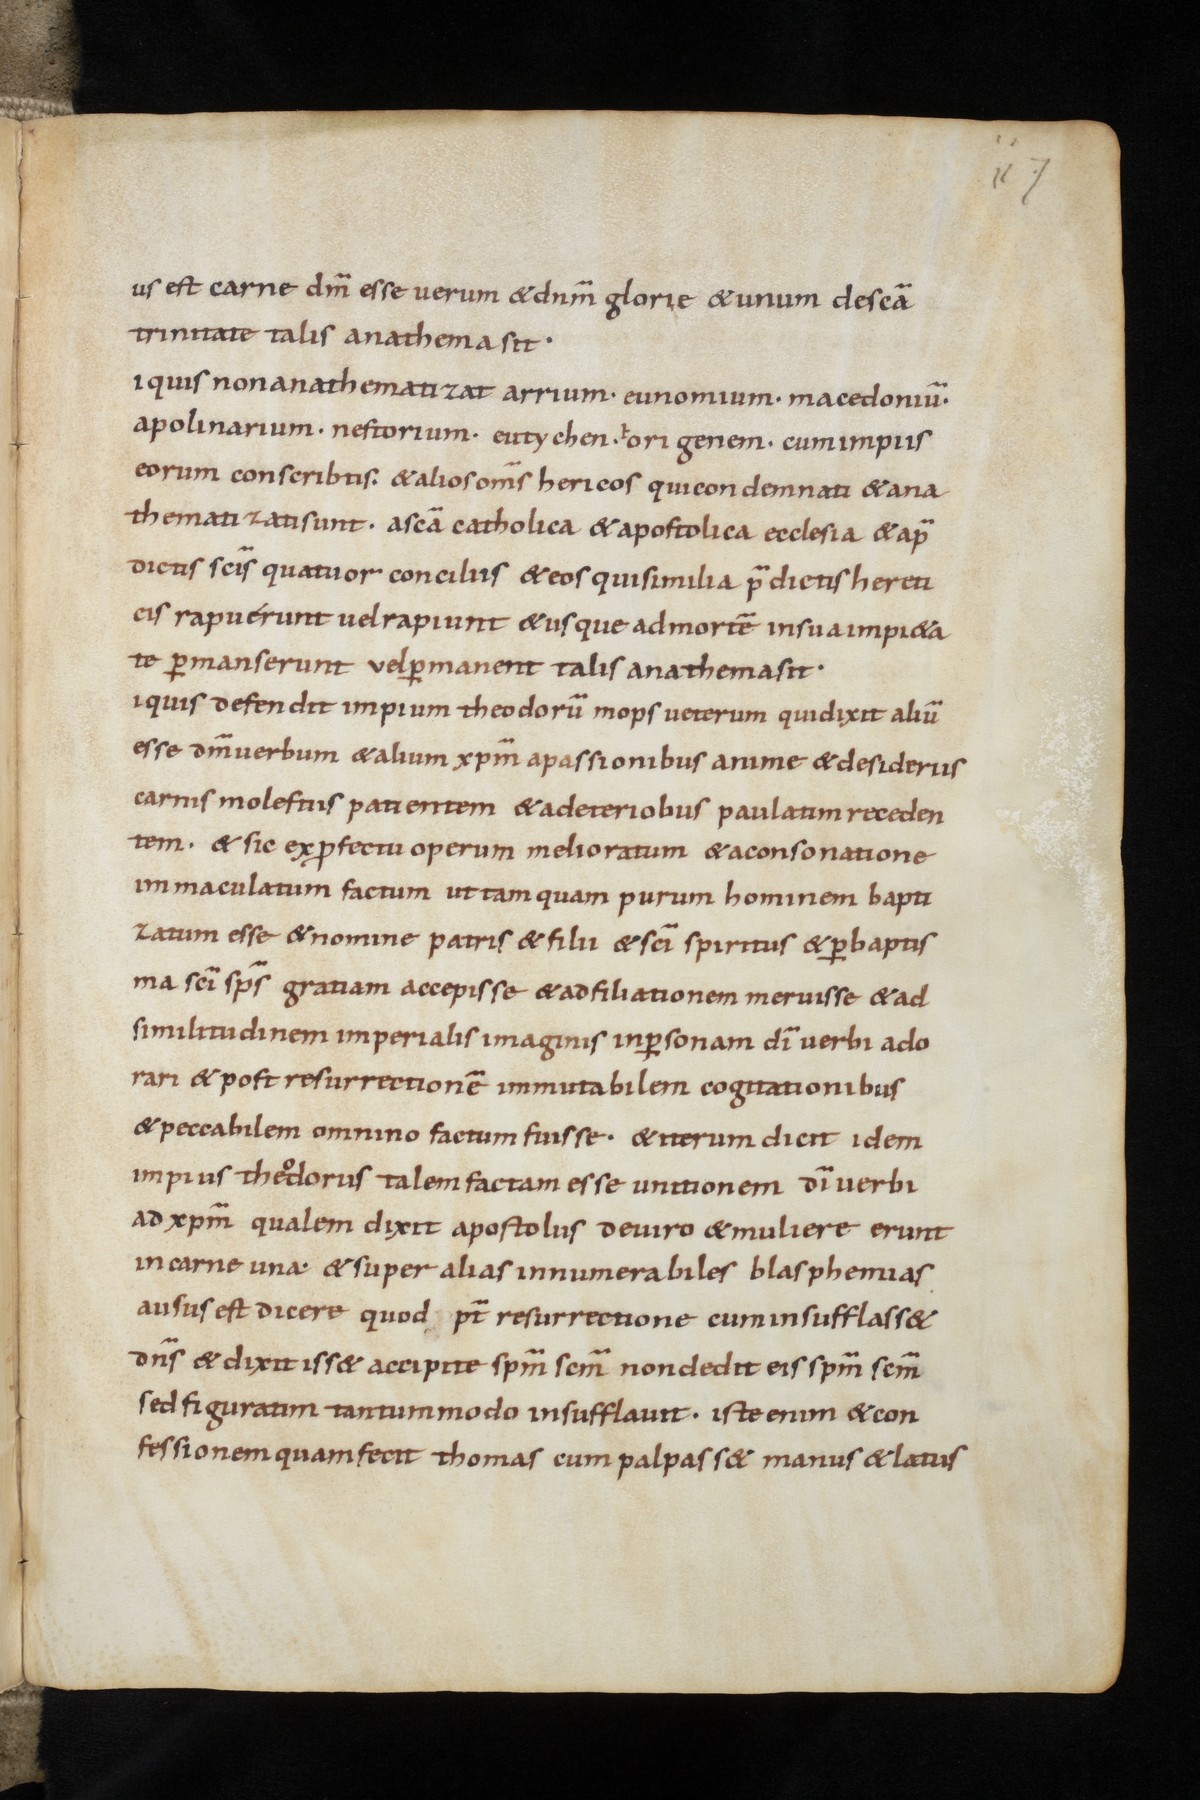 117
us est carne dm̄ esse uerum & dnm̄ glorie & unum de scā
trinitate talis anathema sit·
i quis non anathematizat arrium· eunomium· macedoniū·
apolinarium· nestorium· eutychen· origenem· cum impiis
eorum conscribtis: & alios om̄s hericos qui condemnati & ana
thematizati sunt· a scā catholica & apostolica ecclesia & a p̄
dictis scīs quatuor conciliis & eos qui similia p̄dictis hereti
cis rapuérunt uel rapiunt & usque ad mortē in sua impi&a
te ꝑmanserunt vel ꝑmanent talis anathema sit·
i quis defendit impium theodorū mopsueterum qui dixit aliū
esse dm̄ uerbum & alium xpm̄ a passionibus anime & desideriis
carnis molestiis patientem & a deteriobus paulatim receden
tem· & sic ex ꝓfectu operum melioratum & a consonatione
immaculatum factum ut tamquam purum hominem bapti
zatum esse & nomine patris & filii & scī spiritus & ꝑ baptis
ma scī sp̄s gratiam accepisse & ad filiationem meruisse & ad
similitudinem imperialis imaginis in ꝑsonam dī uerbi ado
rari & post resurrectionē immutabilem cogitationibus
& peccabilem omnino factum fuisse· & iterum dicit idem
impius theodorus talem factam esse unitionem dī uerbi
ad xpm̄ qualem dixit apostolus de uiro & muliere erunt
in carne una· & super alias innumerabiles blasphemias
ausus est dicere quod pt̄ resurrectione cum insufflass&
dn̄s & dixit iss& accipite spm̄ scm̄ non dedit eis spm̄ scm̄
sed figuratim tantummodo insufflauit· iste enim & con
fessionem quam fecit thomas cum palpass& manus & latus